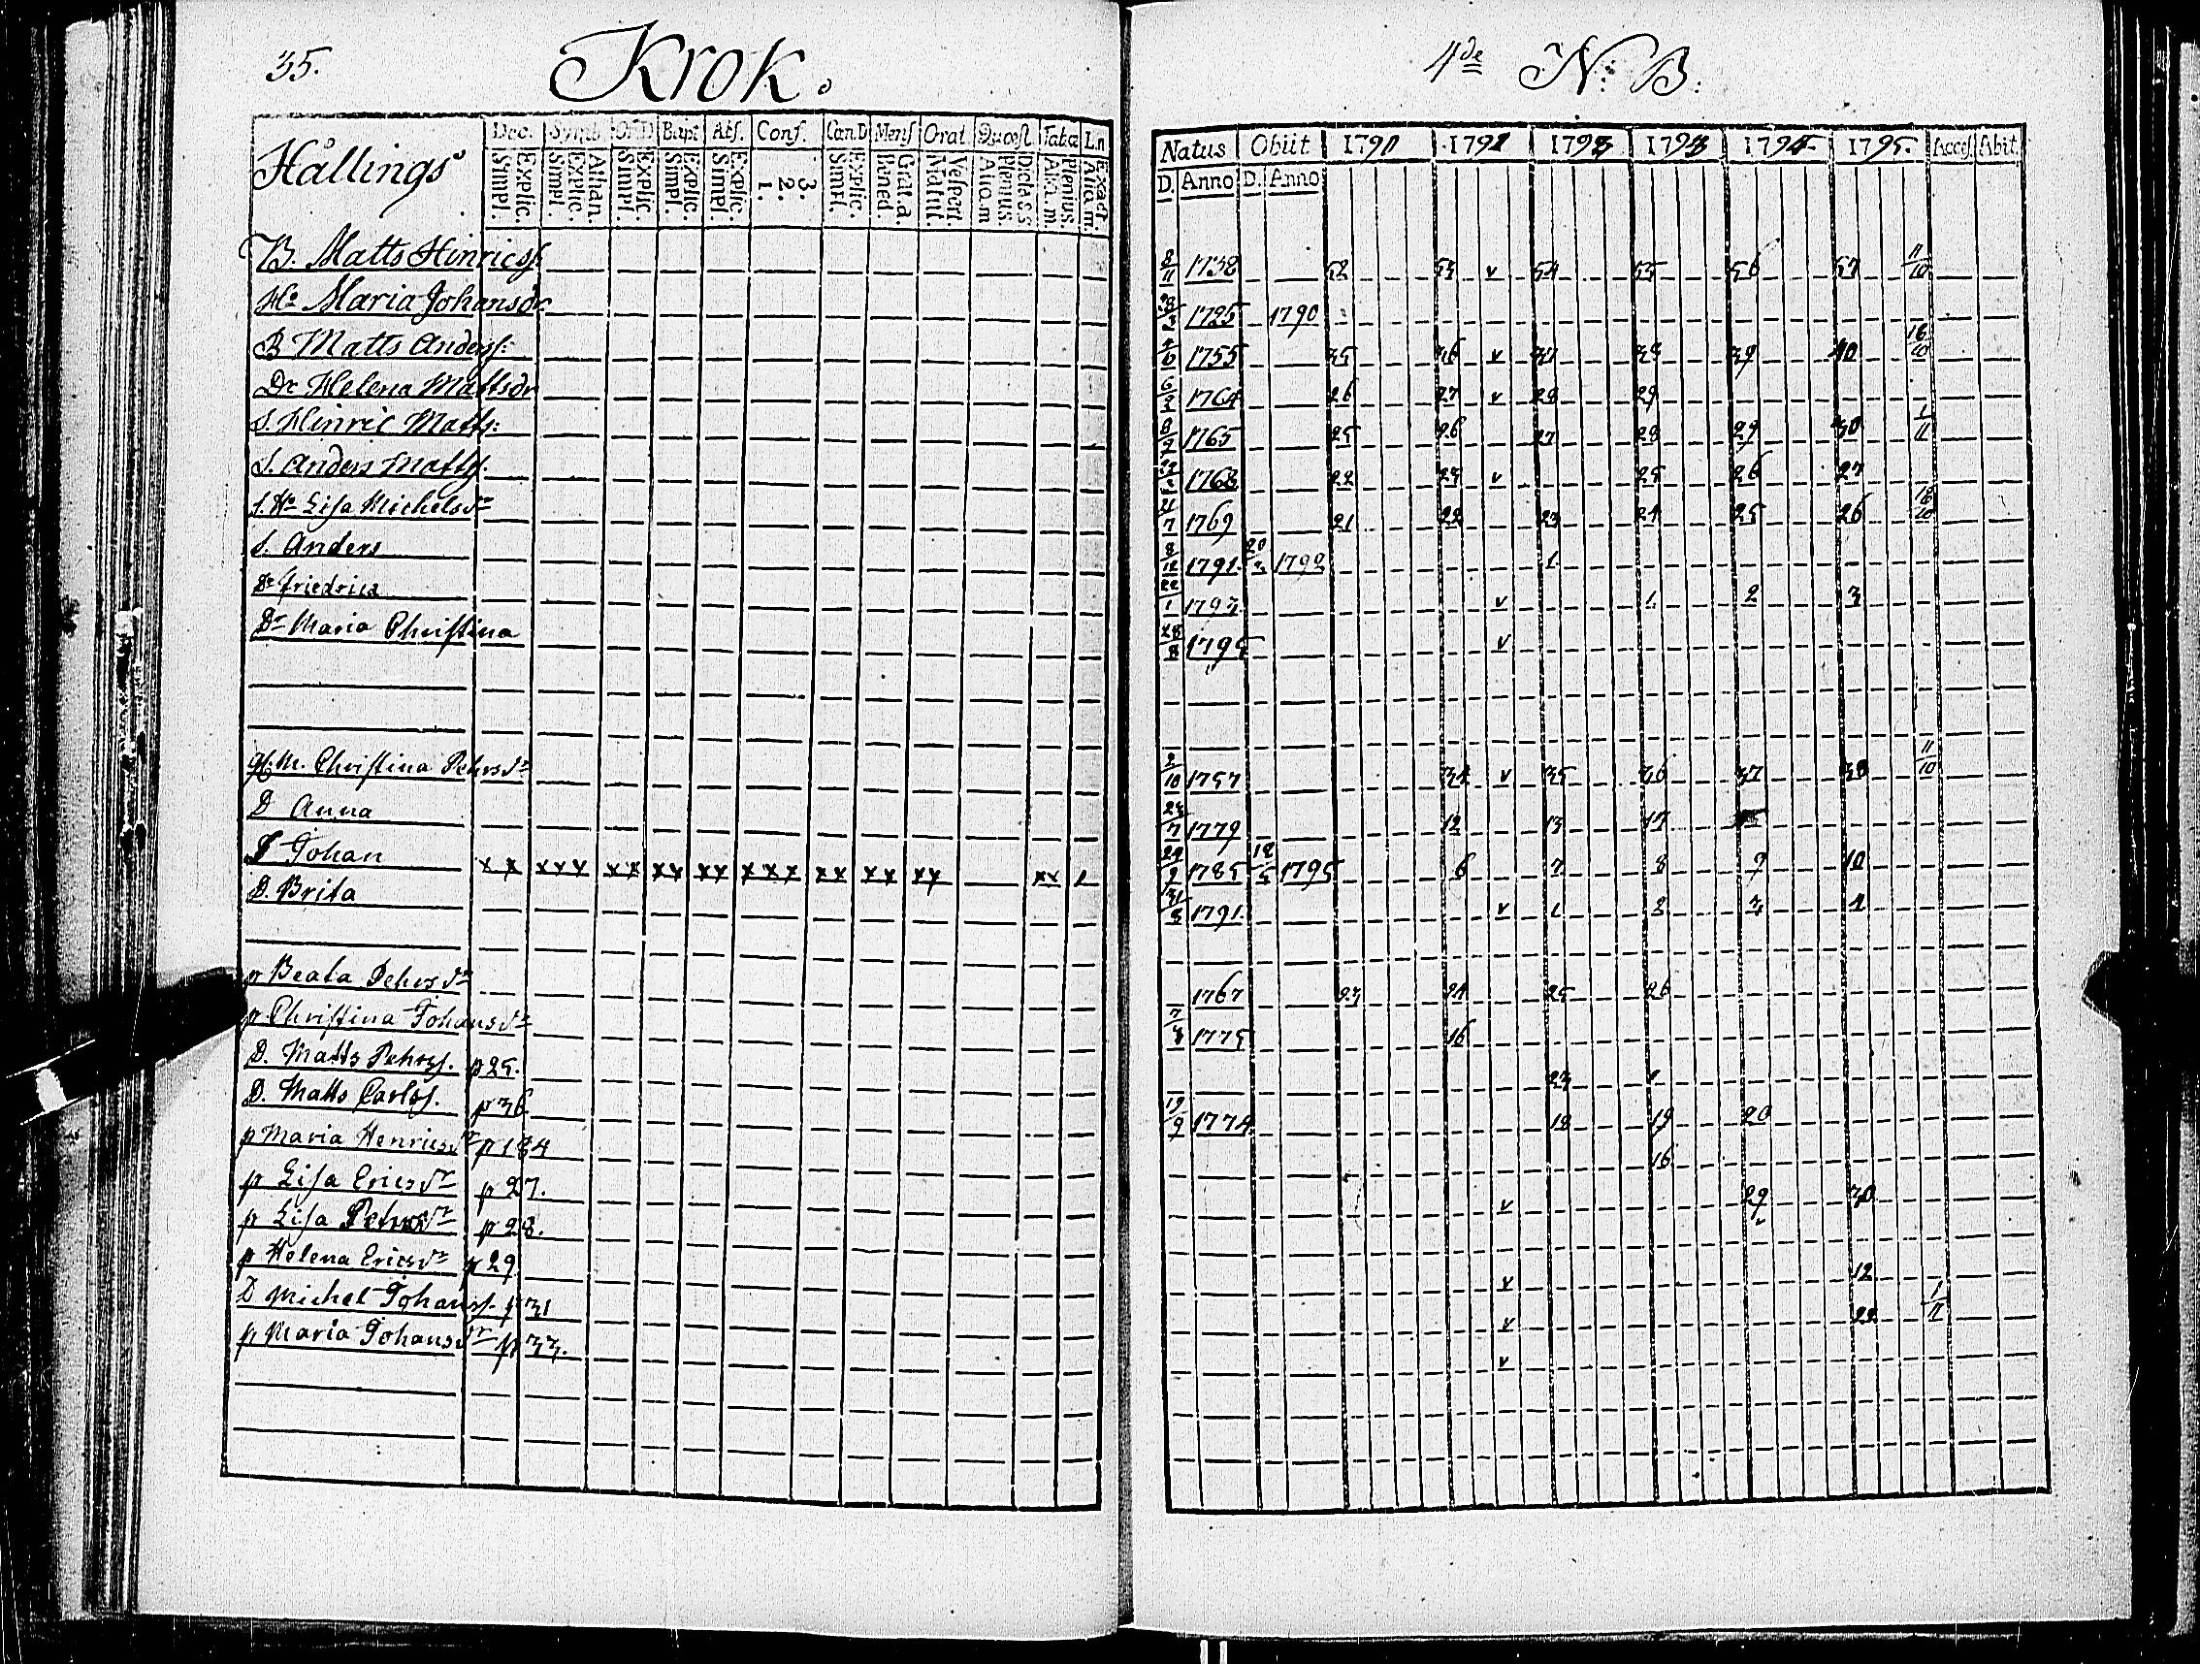 35. Krok.
Hållings
Dec. Symb. Of.D Bapt Abs. Conf. Can.D Mens Orat Quæst Tabæ L.n
Simpl. Explic. Simpl. Explic. Athan. Simpl. Explic. Simpl. Explic. Simpl. Explic. 1. 2. 3. Simpl. Explic. Bened. Grat.a. Matut. Vespert. Aliq.m Plenius. Dicta s.s Aliq.m. Plenius. Aliq.m. Exact.
B. Matts Hinricss.
H.o Maria Johansdr
B Matts Anderss:
Dr Helena Mattsdr
S. Hinric Matts:
S. Anders Matts.
S. H.o Lisa Michelsdr
S. Anders
Dr Friedrica
Dr Maria Christina
M. Christina Pehrsdr
D Anna
S Johan x x x x x x x x x x x x x x x x x x x x x x x
D. Brita
p Beata Pehrsdr
p. Christina Johansdr
D. Matts Pehrss. p 25.
D. Matts Carlss. p 36
p Maria Henricsdr p 184
p Lisa Ericsdr p 27.
p Lisa Pehrsdr p 28.
p Helena Ericsdr p 29
D Michel Johanss. p 31
p Maria Johansdr p 33.
4de N: B:
Natus Obiit 1790 1791 1792 1793 1794 1795. Acces. Abit.
D. Anno D. Anno
8/11 1738 52 53 v 54 55 56 57 11/10
1725 1790
1755 35 36 v 37 38 39 40 18/10
1764 26 27 v 28 29
1765 25 26 27 28 29 30 1/11
1768 22 23 v 25 26 27
21/7 1769 21 22 23 24 25 26 18/10
8/12 1791 1792 1
22/1 1793 v 1 2 3
28/8 1795 v
2/10 1757 34 v 35 36 37 38 11/10
23/7 1779 12 13
1785 18/5 1795 6 7 8 9 10
1791. v 1 2 3 4
1767 23 24 25 26
1775 16
23
19/9 1774 18 19 20
16
v 29 30
v 12
v 22 1/11
v